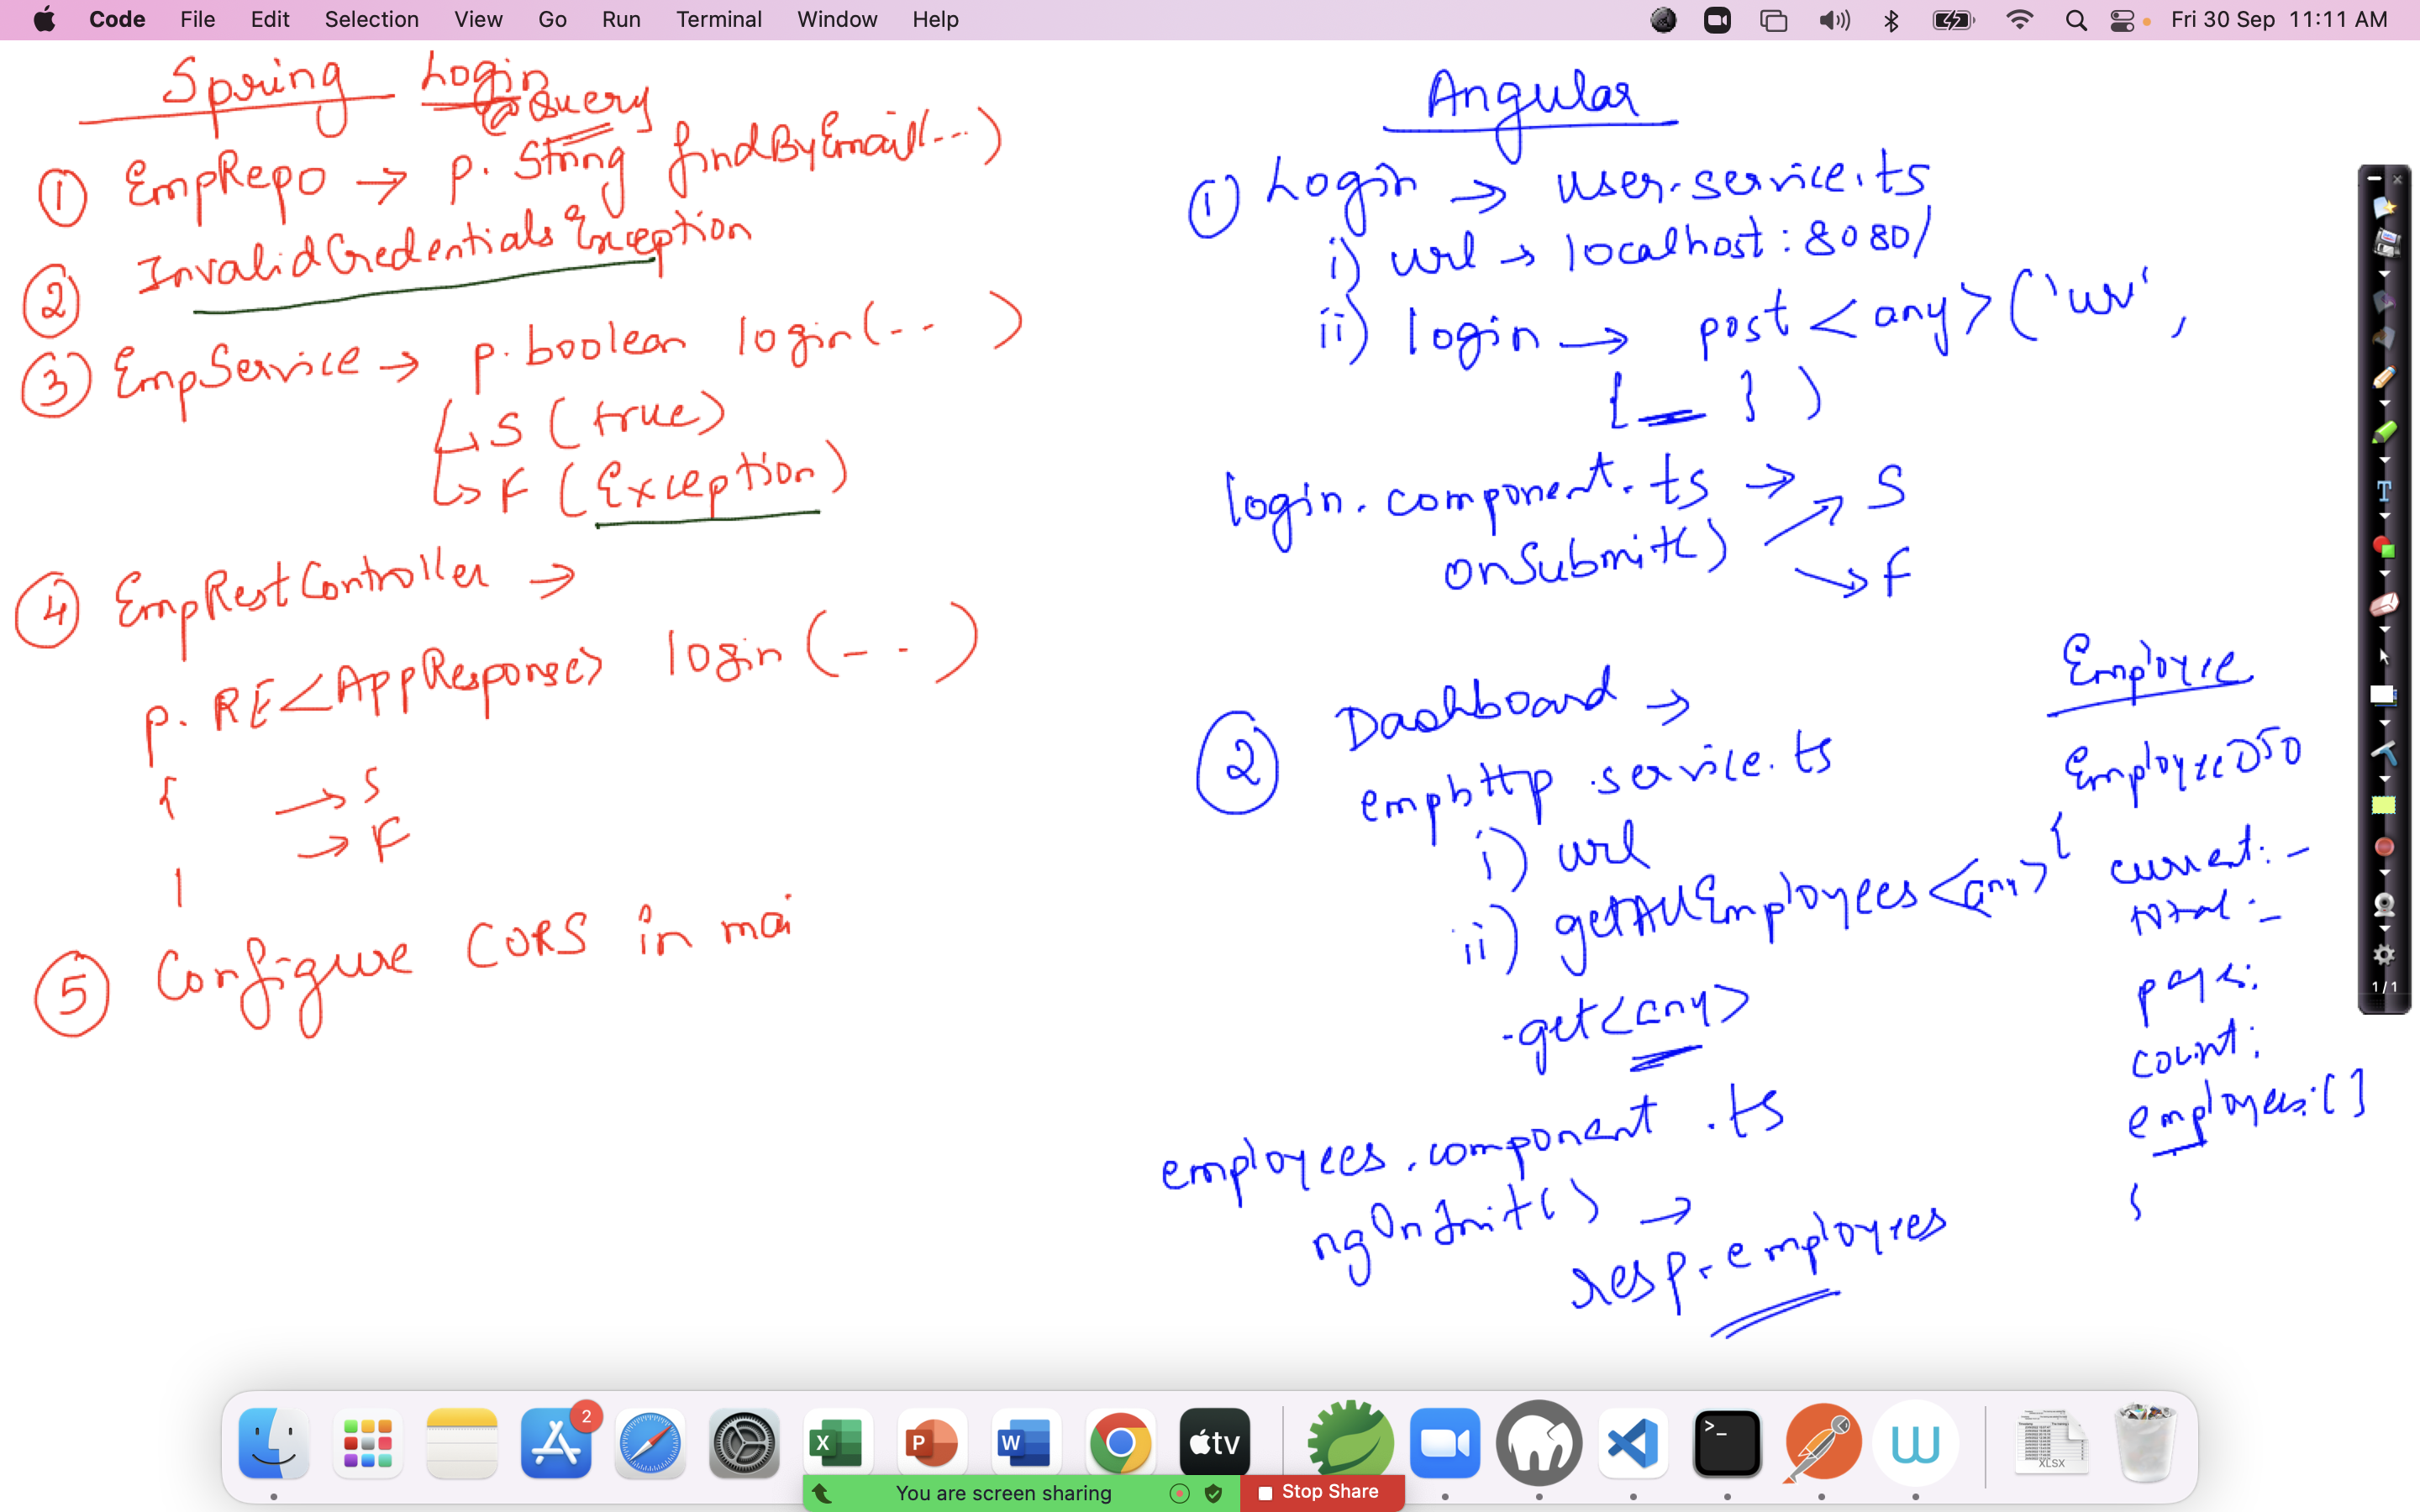 Code File Edit Selection View Go Run Terminal Window Help
Fri 30 Sep 11:11 AM
Spring Login
@Query
① EmpRepo → p. String findByEmail(...)
② InvalidCredentialsException
③ EmpService → p. boolean login(.. )
↳ S (true)
↳ F (Exception)
④ EmpRestController →
p. RE<AppResponse> login(-..)
{ → S
→ F
⑤ Configure CORS in mai
Angular
① Login → user.service.ts
i) url → localhost:8080/
ii) login → post<any>('ur',
{ } )
login.component.ts → S
onSubmit() → F
② Dashboard →
empHttp.service.ts
i) url
ii) getAllEmployees<any>
.get<any>
employees.component.ts
ngOnInit() →
resp.employees
Employee
EmployeeDTO
{
current: -
total: -
pages:
count:
employees: []
}
T
1/1
2
X
P
W
tv
>_
W
XLSX
You are screen sharing
Stop Share